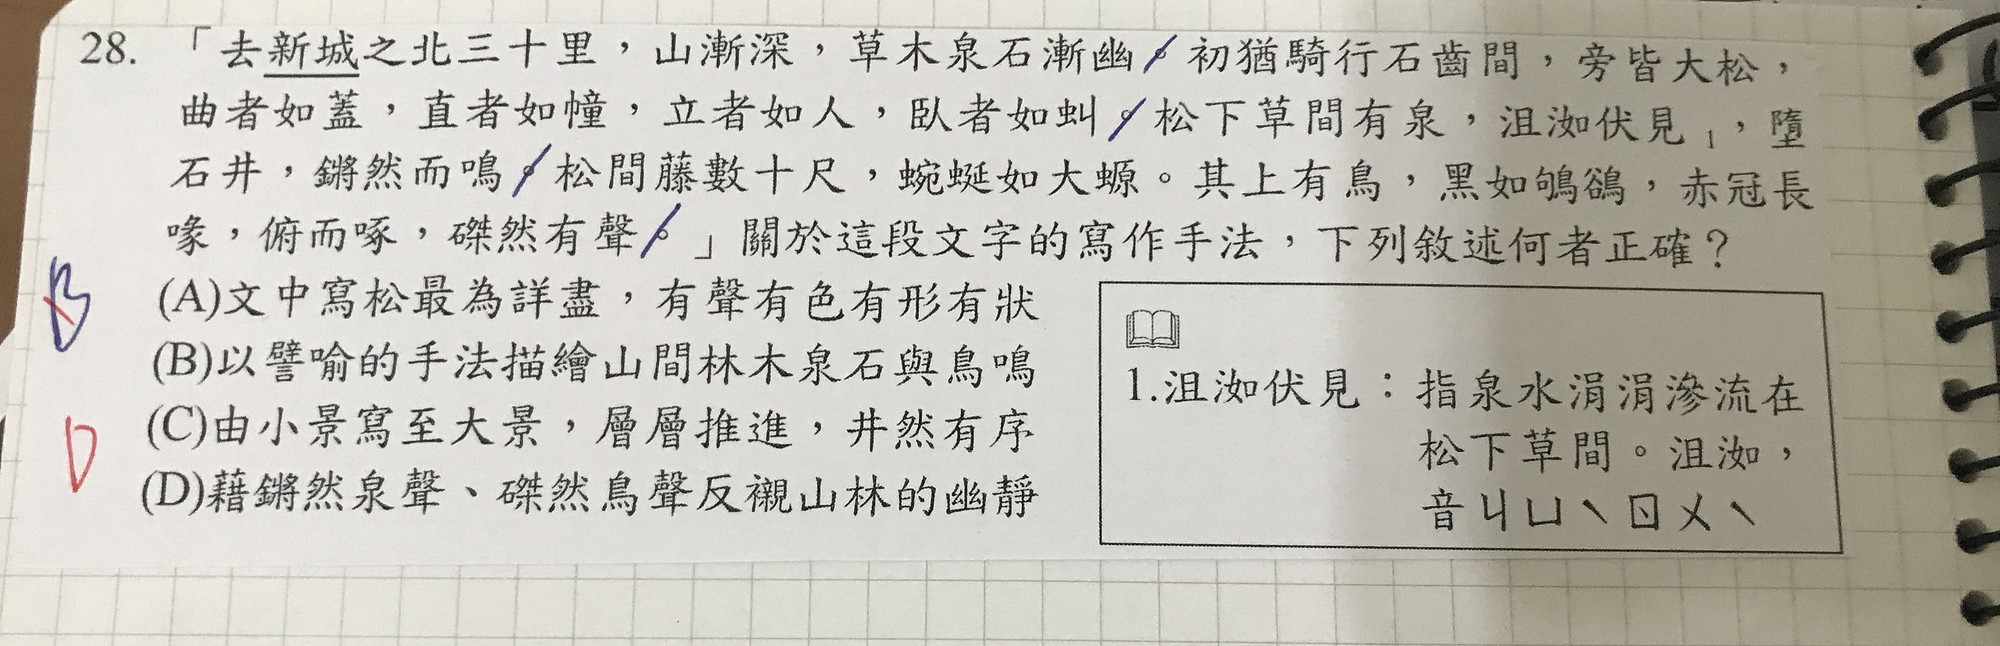 28. 「去新城之北三十里，山漸深，草木泉石漸幽。初猶騎行石齒間，旁皆大松，
曲者如蓋，直者如幢，立者如人，臥者如虯。松下草間有泉，沮洳伏見1，墮
石井，鏘然而鳴。松間藤數十尺，蜿蜒如大螈。其上有鳥，黑如鴝鵒，赤冠長
喙，俯而啄，磔然有聲。」關於這段文字的寫作手法，下列敘述何者正確？
(A)文中寫松最為詳盡，有聲有色有形有狀
(B)以譬喻的手法描繪山間林木泉石與鳥鳴
(C)由小景寫至大景，層層推進，井然有序
(D)藉鏘然泉聲、磔然鳥聲反襯山林的幽靜
B
D
1.沮洳伏見：指泉水涓涓滲流在
松下草間。沮洳，
音ㄐㄩˋㄖㄨˋ